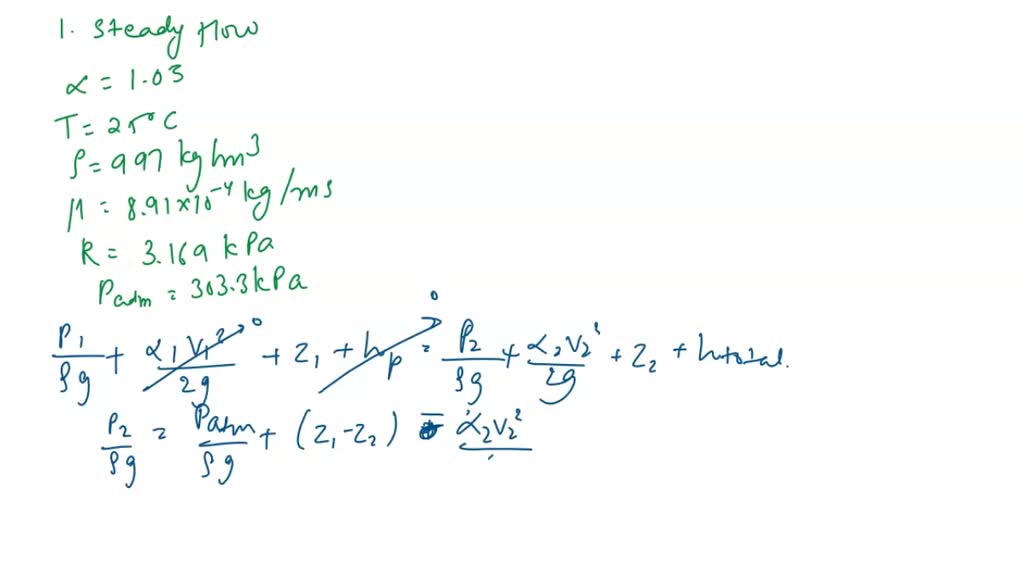 1. Steady flow
α = 1.03
T = 25°C
ρ = 997 kg/m³
μ = 8.91×10⁻⁴ kg/ms
R = 3.169 kPa
Padm = 303.3 kPa
P₁/ρg + α₁V₁²/2g → 0 + Z₁ + hp → 0 = P₂/ρg + α₂V₂²/2g + Z₂ + htotal.
P₂/ρg = Patm/ρg + (Z₁-Z₂) - α₂V₂²